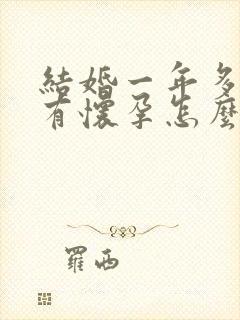 結婚一年多
有懷孕怎麼
羅西